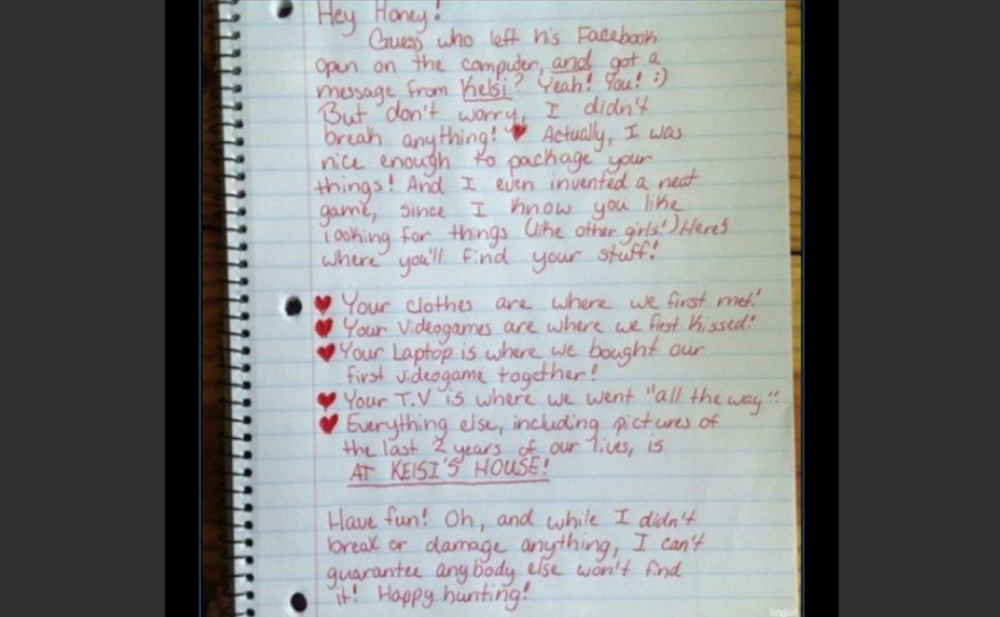 Hey Honey!
Guess who left his Facebook
open on the computer, and got a
message from Kelsi? Yeah! You! :)
But don't worry, I didn't
break anything! ♥ Actually, I was
nice enough to package your
things! And I even invented a neat
game, since I know you like
looking for things (like other girls!) Here's
where you'll find your stuff!
♥ Your clothes are where we first met!
♥ Your Videogames are where we first kissed!
♥ Your Laptop is where we bought our
first videogame together!
♥ Your T.V is where we went "all the way".
♥ Everything else, including pictures of
the last 2 years of our lives, is
AT KELSI'S HOUSE!
Have fun! Oh, and while I didn't
break or damage anything, I can't
guarantee anybody else won't find
it! Happy hunting!
imgur